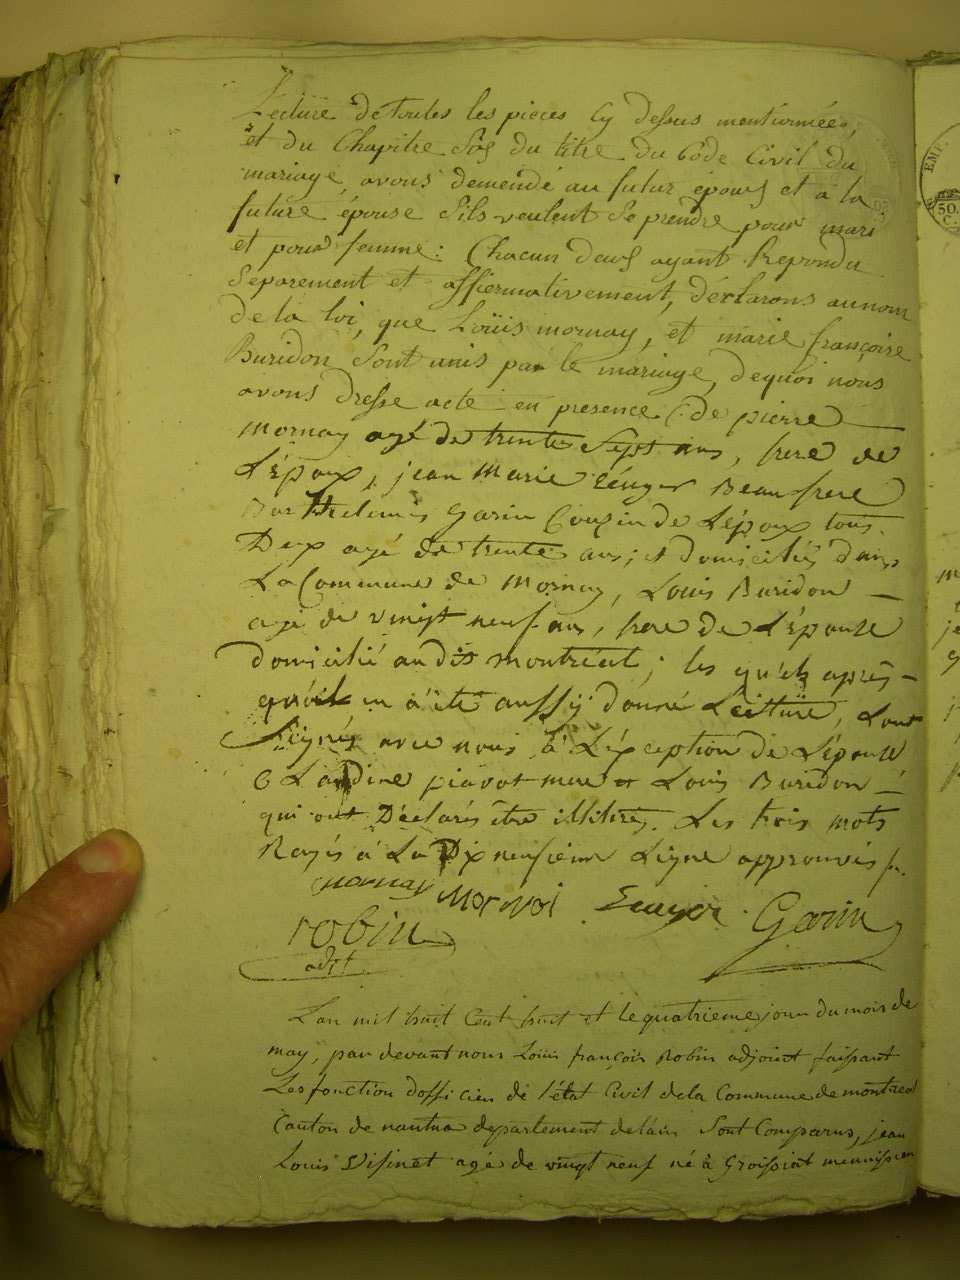 Lecture de toutes les pieces cy dessus mentionnées,
et du Chapitre Six du titre du Code Civil du
mariage, avons demendé au futur époux et a la
future épouse Sils veulent Se prendre pour mari
et pour femme: Chacun deux ayant Repondu
Separement et affirmativement, declarons au nom
de la loi, que Loüis mornay, et marie françoise
Buridon Sont unis par le mariage, dequoi nous
avons dresse acte en presence de pierre
Mornay agé de trente Sept ans, frere de
L'époux, jean Marie Beaufrere
Barthelemis Garin Couzin de L'époux tous
Deux agé de trente ans; et domiciliés dans
La Commune de Mornay, Louis Buridon
agé de vingt neuf ans, frere de L'épouse
domicilié audit montréal; les quels après
quoil en a été aussy donné Lecture, Sont
Signés avec nous à L'exception de L'épouse
Claudine piavot mere et Louis Buridon
qui ont Déclarés être illitrés. Les trois mots
Rayés à La Dix neufieme Ligne approuvés
mornay Mornai Garin
robin
adjt
Lan mil huit Cent huit et le quatrieme jour du mois de
may, par devant nous Loüis françois Robin adjoint faissant
Les fonction dofficier de l'état Civil de la Commune de montreal
Canton de nantua departement de lain Sont Comparus, jean
Louis Visinet agé de vingt neuf né à Groissiat
EMP.
50.
C.